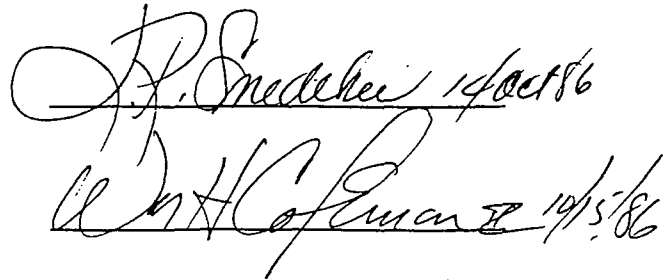 J.R. Snedeker 14 Oct 86
Wm H Coffman II 10/15/86